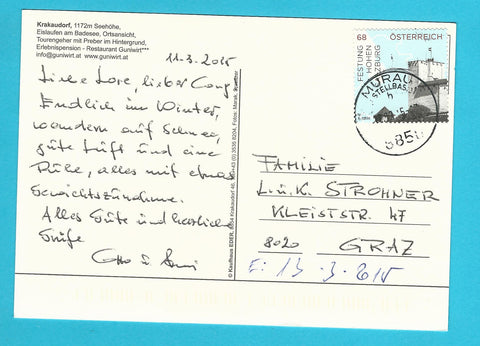 Krakaudorf, 1172m Seehöhe,
Eislaufen am Badesee, Ortsansicht,
Tourengeher mit Preber im Hintergrund,
Erlebnispension - Restaurant Guniwirt***
info@guniwirt.at www.guniwirt.at
11-3-2015
Liebe Lore, lieber
Endlich im Winter,
wandern auf Schnee,
gute Luft und eine
Ruhe, alles mit etwas
Gewichtszunahme.
Alles Gute und herzliche
Grüße
Otto u.
© Kaufhaus EDER, 8854 Krakaudorf 46, 0043 (0) 3535 8204, Fotos:
68
ÖSTERREICH
FESTUNG HOHENSALZBURG
MURAU
FAMILIE
L.u.K. STROHNER
KLEISTSTR. 47
8020 GRAZ
E: 13.3.2015